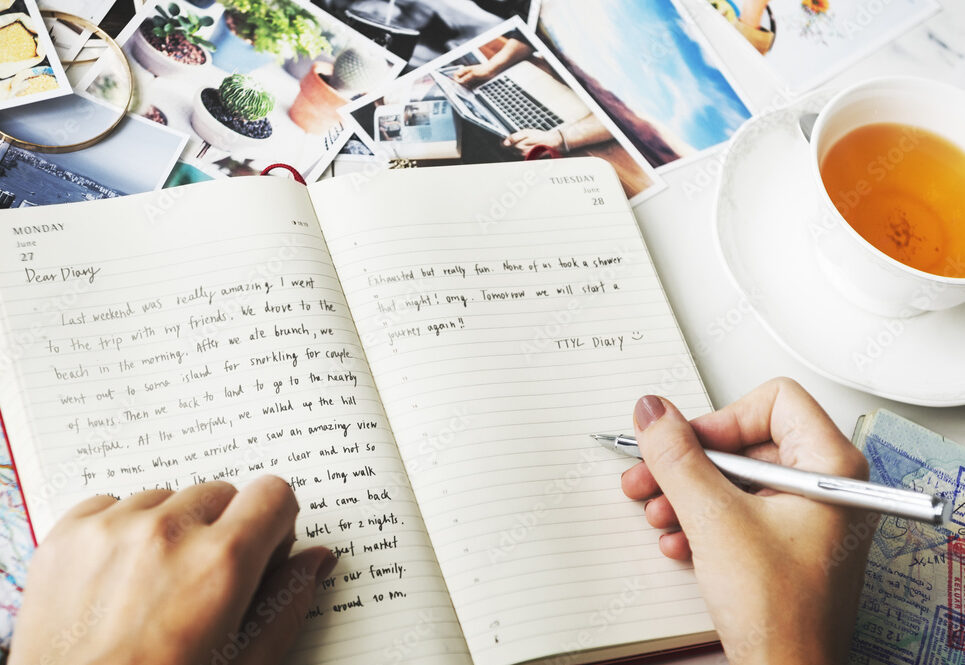 MONDAY
June
27
Dear Diary
Last weekend was really amazing. I went
to the trip with my friends. We drove to the
beach in the morning. After we ate brunch, we
went out to some island for snorkling for couple
of hours. Then we back to land to go to the nearby
waterfall. At the waterfall, we walked up the hill
for 30 mins. When we arrived we saw an amazing view
waterfall! The water was so clear and not so
after a long walk
and came back
hotel for 2 nights.
market
for our family.
hotel around 10 pm.
TUESDAY
June
28
Exhausted but really fun. None of us took a shower
that night! omg. Tomorrow we will start a
journey again!!
TTYL Diary